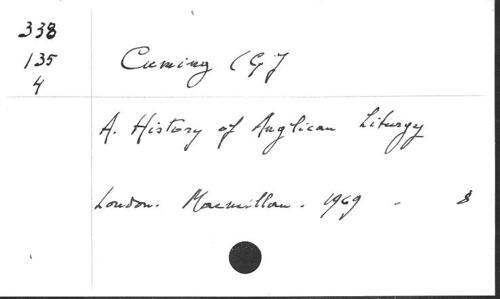 338
135
4
Cuming (GJ
A. History of Anglican Liturgy
London. Macmillan. 1969 - 8